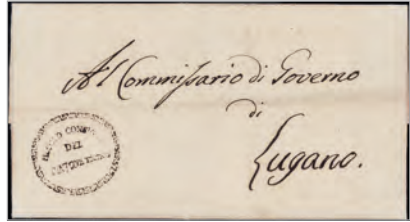 Al Commissario di Governo
di
Lugano.
DEL